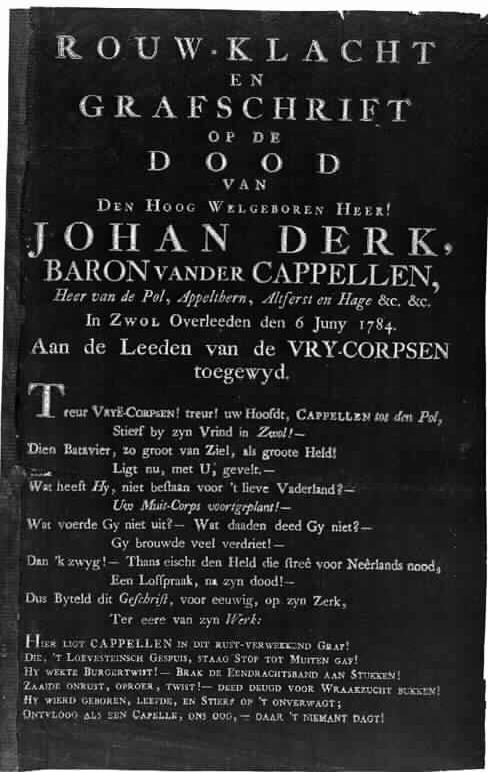 ROUW-KLACHT
EN
GRAFSCHRIFT
OP DE
DOOD
VAN
DEN HOOG WELGEBOREN HEER!
JOHAN DERK,
BARON VANDER CAPPELLEN,
Heer van de Pol, Appelthern, Altforst en Hage &c. &c.
In ZWOL Overleeden den 6 Juny 1784.
Aan de Leeden van de VRY-CORPSEN
toegewyd.
Treur VRYË-CORPSEN! treur! uw Hoofdt, CAPPELLEN tot den Pol,
Stierf by zyn Vrind in Zwol!—
Dien Batavier, zo groot van Ziel, als groote Held!
Ligt nu, met U, gevelt.—
Wat heeft Hy, niet bestaan voor 't lieve Vaderland?—
Uw Muit-Corps voortgeplant!—
Wat voerde Gy niet uit?— Wat daaden deed Gy niet?—
Gy brouwde veel verdriet!—
Dan 'k zwyg!— Thans eischt den Held die streê voor Neêrlands nood,
Een Lofspraak, na zyn dood!—
Dus Byteld dit Geschrift, voor eeuwig, op zyn Zerk,
Ter eere van zyn Werk:
HIER LIGT CAPPELLEN IN DIT RUST-VERWEKKEND GRAF!
DIE, 'T LOEVESTEINSCH GESPUIS, STAAG STOF TOT MUITEN GAF!
HY WEKTE BURGERTWIST!— BRAK DE EENDRACHTSBAND AAN STUKKEN!
ZAAIDE ONRUST, OPROER, TWIST!— DEED DEUGD VOOR WRAAKZUCHT BUKKEN!
HY WIERD GEBOREN, LEEFDE, EN STIERF OP 'T ONVERWAGT;
ONTVLOOG ALS EEN CAPELLE, ONS OOG,— DAAR 'T NIEMANT DAGT!